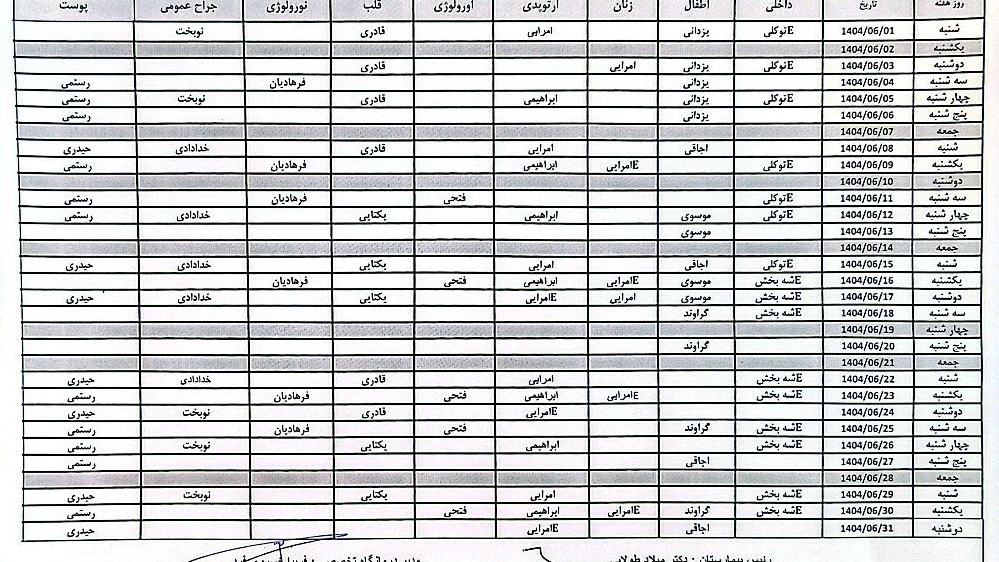 روز هفته تاریخ داخلی اطفال زنان ارتوپدی اورولوژی قلب نورولوژی جراح عمومی پوست
شنبه 1404/06/01 Eتوکلی یزدانی امرایی قادری نوبخت
یکشنبه 1404/06/02
دوشنبه 1404/06/03 Eتوکلی یزدانی امرایی قادری
سه شنبه 1404/06/04 یزدانی فرهادیان رستمی
چهار شنبه 1404/06/05 Eتوکلی یزدانی ابراهیمی قادری نوبخت رستمی
پنج شنبه 1404/06/06 یزدانی رستمی
جمعه 1404/06/07
شنبه 1404/06/08 اجاقی امرایی قادری خدادادی حیدری
یکشنبه 1404/06/09 Eتوکلی Eامرایی ابراهیمی فرهادیان رستمی
دوشنبه 1404/06/10
سه شنبه 1404/06/11 Eتوکلی فتحی فرهادیان رستمی
چهار شنبه 1404/06/12 Eتوکلی موسوی ابراهیمی یکتایی خدادادی رستمی
پنج شنبه 1404/06/13 موسوی
جمعه 1404/06/14
شنبه 1404/06/15 Eتوکلی اجاقی امرایی یکتایی خدادادی حیدری
یکشنبه 1404/06/16 Eشه بخش موسوی Eامرایی ابراهیمی فتحی فرهادیان رستمی
دوشنبه 1404/06/17 Eشه بخش موسوی امرایی Eامرایی یکتایی خدادادی حیدری
سه شنبه 1404/06/18 Eشه بخش گراوند
چهار شنبه 1404/06/19
پنج شنبه 1404/06/20 گراوند
جمعه 1404/06/21
شنبه 1404/06/22 Eشه بخش امرایی قادری خدادادی حیدری
یکشنبه 1404/06/23 Eشه بخش Eامرایی ابراهیمی فتحی فرهادیان رستمی
دوشنبه 1404/06/24 Eامرایی قادری نوبخت حیدری
سه شنبه 1404/06/25 Eشه بخش گراوند فتحی فرهادیان رستمی
چهار شنبه 1404/06/26 Eشه بخش ابراهیمی یکتایی نوبخت رستمی
پنج شنبه 1404/06/27 اجاقی رستمی
جمعه 1404/06/28
شنبه 1404/06/29 Eشه بخش امرایی یکتایی نوبخت حیدری
یکشنبه 1404/06/30 Eشه بخش گراوند Eامرایی ابراهیمی فتحی رستمی
دوشنبه 1404/06/31 اجاقی Eامرایی حیدری
رئیس بیمارستان : دکتر میلاد طولابی مدیر درمانگاه تخصصی